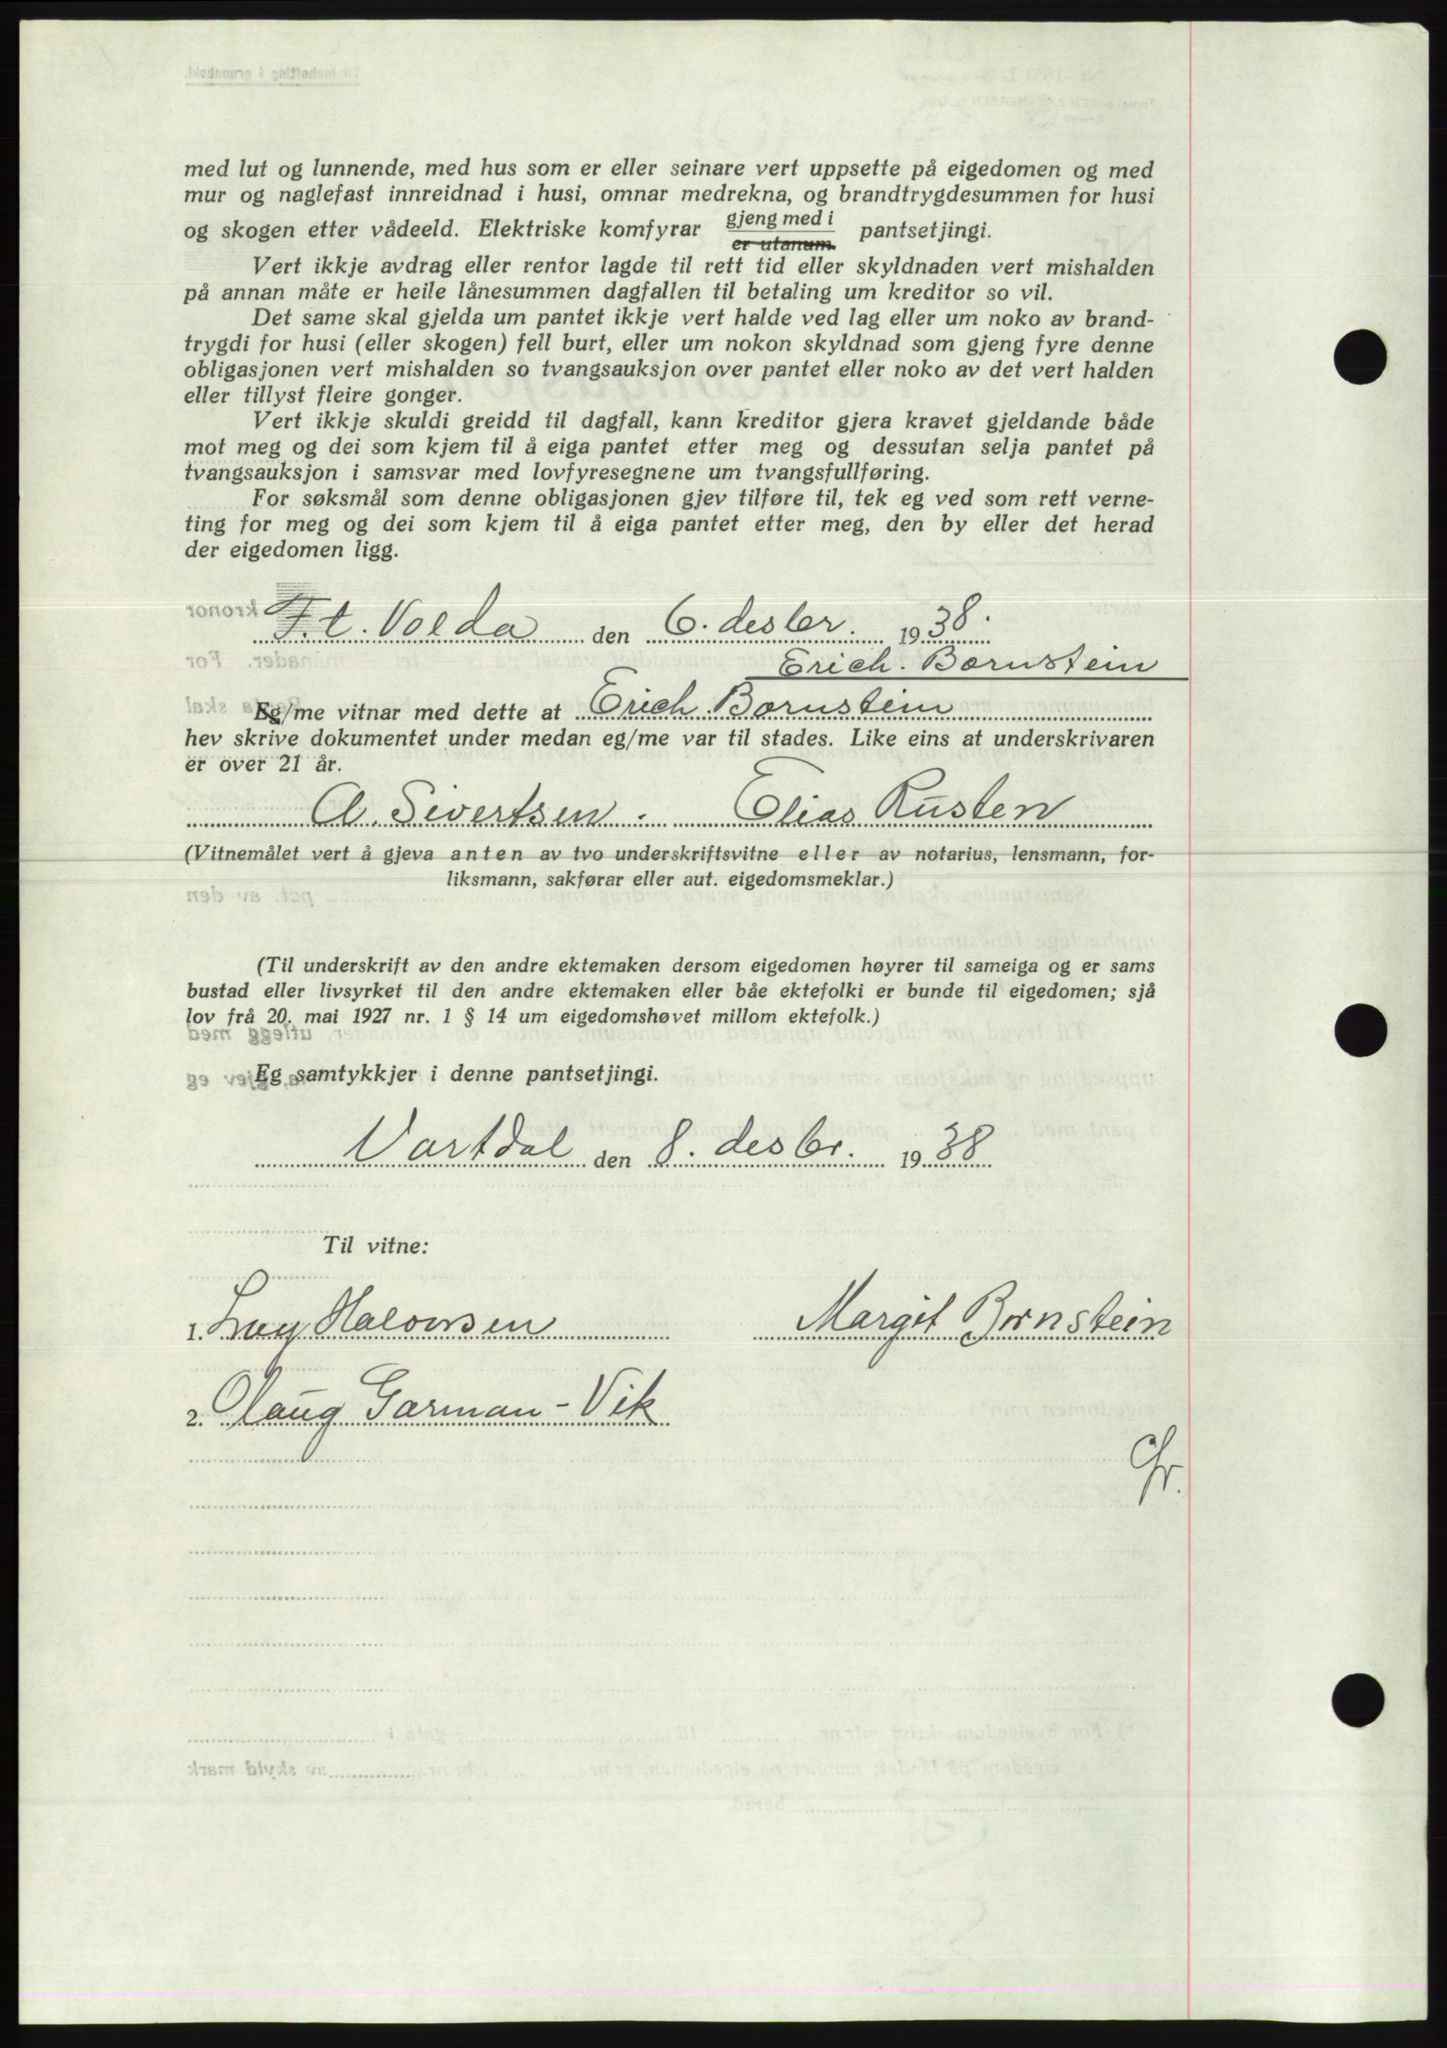 med lut og lunnende, med hus som er eller seinare vert uppsette på eigedomen og med
mur og naglefast innreidnad i husi, omnar medrekna, og brandtrygdesummen for husi
og skogen etter vådeeld. Elektriske komfyrar gjeng med i er utanum pantsetjingi.
Vert ikkje avdrag eller rentor lagde til rett tid eller skyldnaden vert mishalden
på annan måte er heile lånesummen dagfallen til betaling um kreditor so vil.
Det same skal gjelda um pantet ikkje vert halde ved lag eller um noko av brand-
trygdi for husi (eller skogen) fell burt, eller um nokon skyldnad som gjeng fyre denne
obligasjonen vert mishalden so tvangsauksjon over pantet eller noko av det vert halden
eller tillyst fleire gonger.
Vert ikkje skuldi greidd til dagfall, kann kreditor gjera kravet gjeldande både
mot meg og dei som kjem til å eiga pantet etter meg og dessutan selja pantet på
tvangsauksjon i samsvar med lovfyresegnene um tvangsfullføring.
For søksmål som denne obligasjonen gjev tilføre til, tek eg ved som rett verne-
ting for meg og dei som kjem til å eiga pantet etter meg, den by eller det herad
der eigedomen ligg.
F.t. Volda den 6. desbr. 1938.
Erich. Bornstein
Eg/me vitnar med dette at Erich Bornstein
hev skrive dokumentet under medan eg/me var til stades. Like eins at underskrivaren
er over 21 år.
A. Sivertsen. Elias Rusten
(Vitnemålet vert å gjeva anten av tvo underskriftsvitne eller av notarius, lensmann, for-
liksmann, sakførar eller aut. eigedomsmeklar.)
(Til underskrift av den andre ektemaken dersom eigedomen høyrer til sameiga og er sams
bustad eller livsyrket til den andre ektemaken eller båe ektefolki er bunde til eigedomen; sjå
lov frå 20. mai 1927 nr. 1 § 14 um eigedomshøvet millom ektefolk.)
Eg samtykkjer i denne pantsetjingi.
Vartdal den 8. desbr. 1938
Til vitne:
1. Halvorsen Margit Bornstein
2. Olaug Garman-Vik